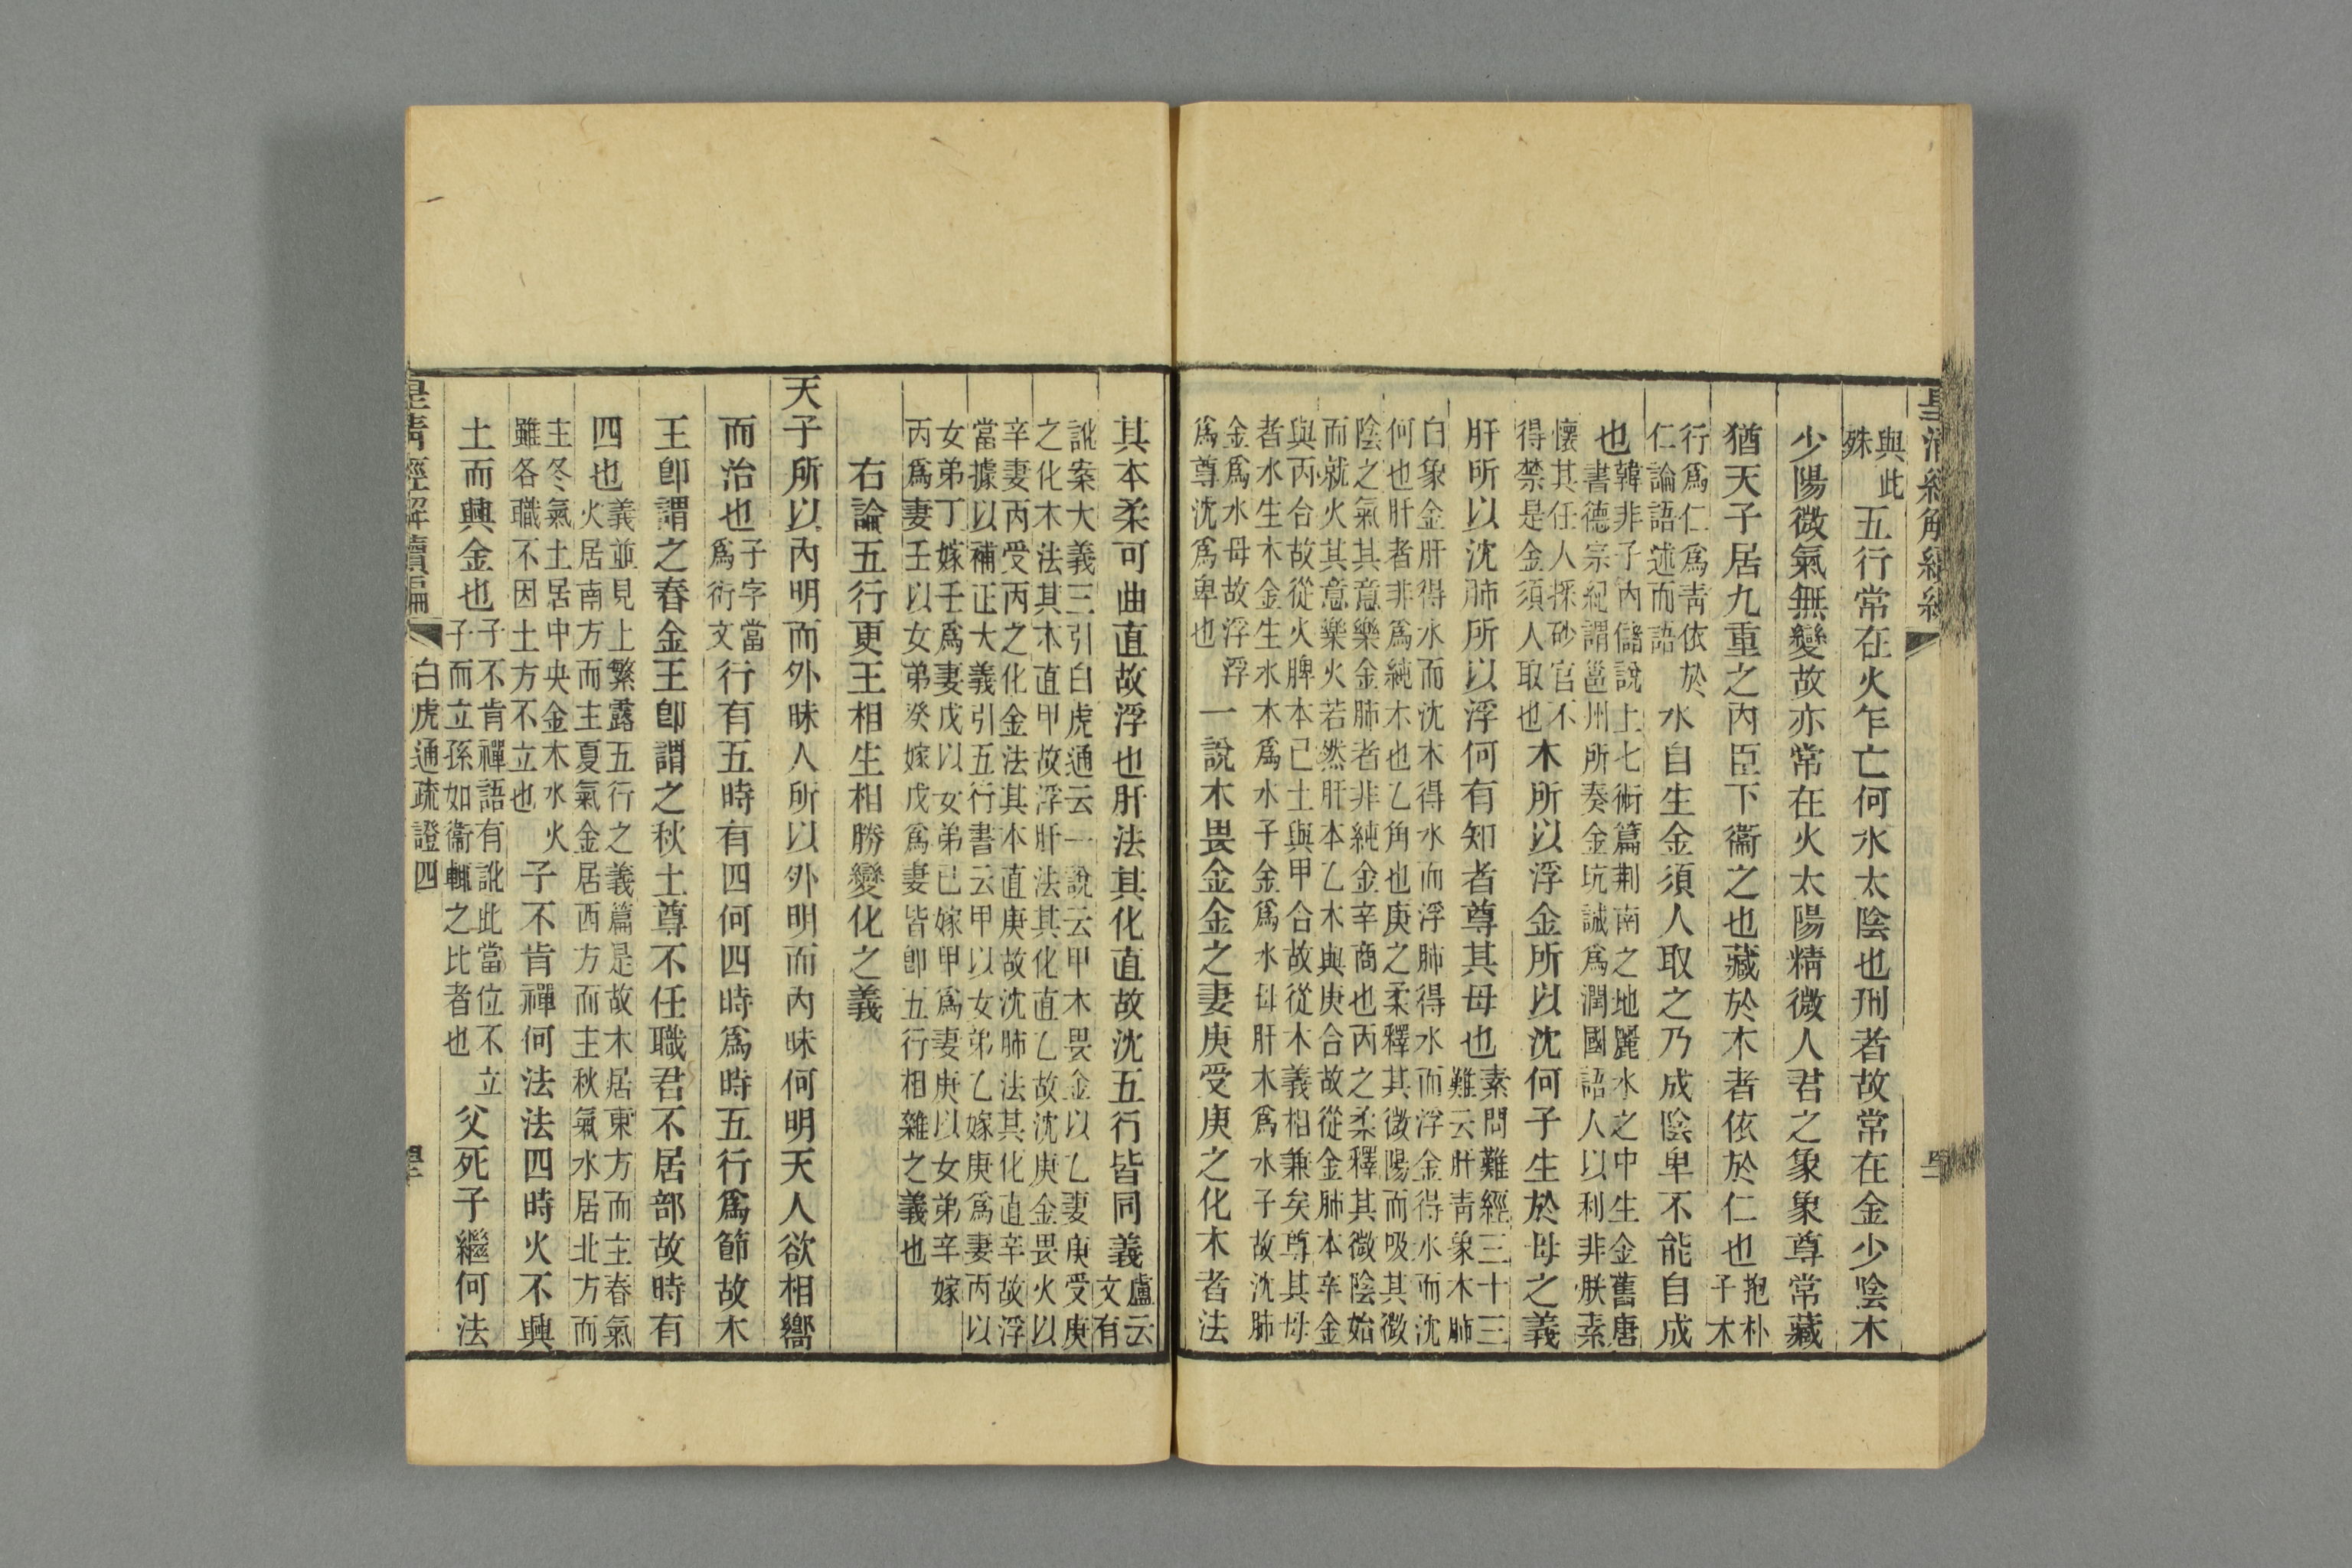 與此
殊
五行常在火乍亡何水太陰也刑者故常在金少陰木
少陽微氣無變故亦常在火太陽精微人君之象象尊常藏
猶天子居九重之內臣下衞之也藏於木者依於仁也
抱朴
子木
行爲仁爲靑依於
仁論語述而語
水自生金須人取之乃成陰卑不能自成
也
韓非子內儲說上七術篇荆南之地麗水之中生金舊唐
書德宗紀謂邕州所奏金坑誠爲潤國詔人以利非朕素
懷其任人採砂官不
得禁是金須人取也
木所以浮金所以沈何子生於母之義
肝所以沈肺所以浮何有知者尊其母也
素問難經三十三
難云肝靑象木肺
白象金肝得水而沈木得水而浮肺得水而浮金得水而沈
何也肝者非爲純木也乙角也庚之柔釋其微陽而吸其微
陰之氣其意樂金肺者非純金辛商也丙之柔釋其微陰始
而就火其意樂火若然肝本乙木與庚合故從金肺本辛金
與丙合故從火脾本己土與甲合故從木義相兼矣尊其母
者水生木金生水木爲水子金爲水母肝木爲水子故沈肺
金爲水母故浮浮
爲尊沈爲卑也
一說木畏金金之妻庚受庚之化木者法
其本柔可曲直故浮也肝法其化直故沈五行皆同義
盧云
文有
訛案大義三引白虎通云一說云甲木畏金以乙妻庚受庚
之化木法其木直甲故浮肝法其化直乙故沈庚金畏火以
辛妻丙受丙之化金法其本直庚故沈肺法其化直辛故浮
當據以補正大義引五行書云甲以女弟乙嫁庚爲妻丙以
女弟丁嫁壬爲妻戊以女弟己嫁甲爲妻庚以女弟辛嫁
丙爲妻壬以女弟癸嫁戊爲妻皆卽五行相雜之義也
右論五行更王相生相勝變化之義
天子所以內明而外昧人所以外明而內昧何明天人欲相嚮
而治也
子字當
爲衍文
行有五時有四何四時爲時五行爲節故木
王卽謂之春金王卽謂之秋土尊不任職君不居部故時有
四也
義並見上繁露五行之義篇是故木居東方而主春氣
火居南方而主夏氣金居西方而主秋氣水居北方而
主冬氣土居中央金木水火
雖各職不因土方不立也
子不肯禪何法法四時火不興
土而興金也
子不肯禪語有訛此當位不立
子而立孫如衞輒之比者也
父死子繼何法
皇清經解續編
白虎通疏證四